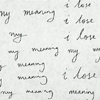 my meaning i lose
i lose
my my meaning
my meaning my i lose
my meaning
meaning my meaning i lose